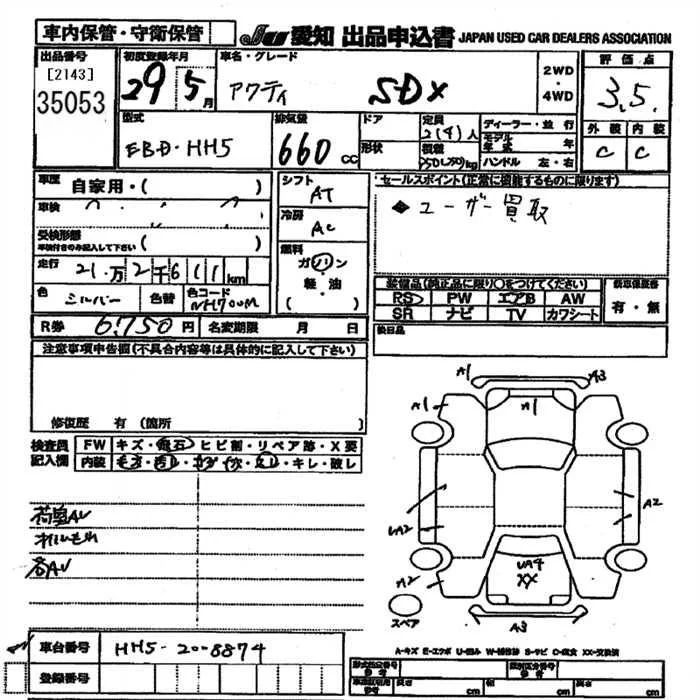 車内保管・守衛保管
JU 愛知 出品申込書 JAPAN USED CAR DEALERS ASSOCIATION
出品番号
[2143]
35053
初度登録年月
29 5月
車名・グレード
アクティ SDX
2WD
・
4WD
評価点
3.5.
外装 内装
C C
型式
EBD-HH5
排気量
660 CC
ドア
形状
定員
2(4)人
積載
350(250)kg
ディーラー・並行
モデル年式 年
ハンドル 左・右
車歴 自家用・( )
車検
受検形態
車検付きのみ記入して下さい ( )
走行
21万2千611km
色 シルバー 色替 色コード NH700M
シフト
AT
冷房
AC
燃料
ガソリン
・
軽・油
( )
セールスポイント(正常に機能するものに限ります)
◆ユーザー買取
装備品(純正品に限り○をつけてください)
RS PW エアB AW
SR ナビ TV カワシート
新車保証書
有・無
後日品
R券 6,750円 名変期限 月 日
注意事項申告欄(不具合内容等は具体的に記入して下さい)
修復歴 有(箇所
検査員記入欄
FW キズ・飛石・ヒビ割・リペア跡・X要
内装 ・キレ・破レ
荷台AU
オイルもれ
各AU
A1 A3
A1
UA2 A2
A2 UA4
XX
スペア A3
A-キズ E-エクボ U-凹み W-補修跡 S-サビ C-腐食 XX-交換済
車台番号 HH5-2008874
登録番号
型式指定番号 類別区分番号
長さ cm 幅 cm 高さ cm